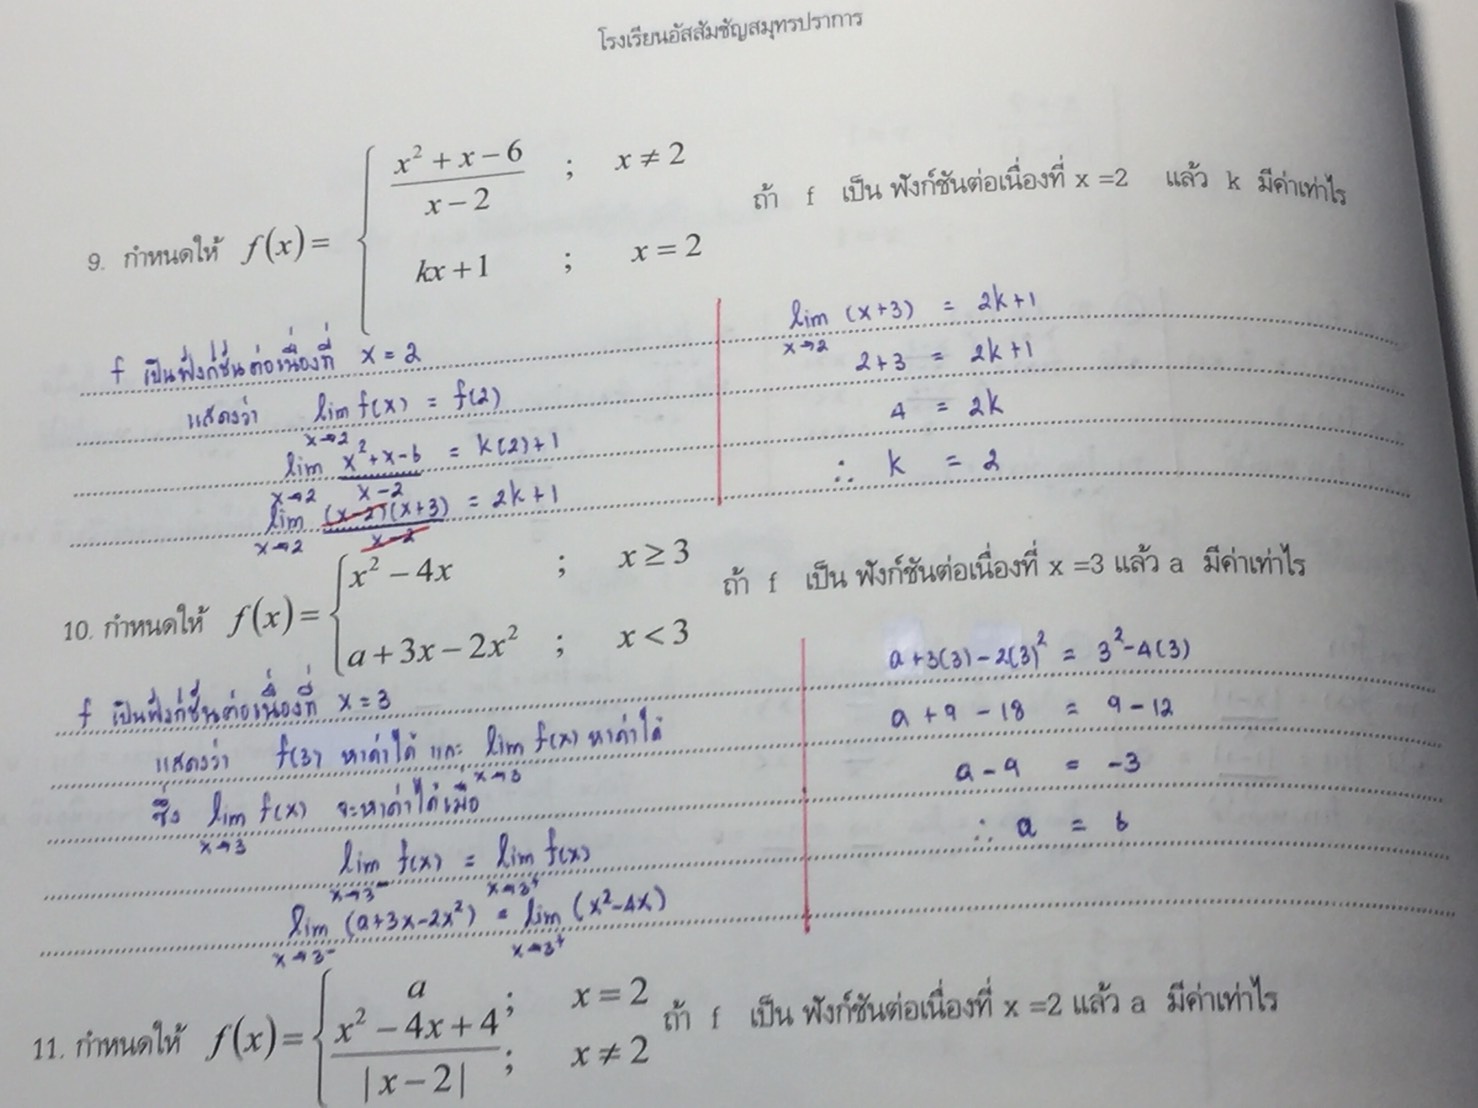 โรงเรียนอัสสัมชัญสมุทรปราการ
9. กำหนดให้ f(x) = { (x² + x − 6)/(x − 2) ; x ≠ 2
kx + 1 ; x = 2
ถ้า f เป็น ฟังก์ชันต่อเนื่องที่ x =2 แล้ว k มีค่าเท่าไร
f เป็นฟังก์ชั่นต่อเนื่องที่ x = 2
แสดงว่า lim x→2 f(x) = f(2)
lim x→2 (x²+x−6)/(x−2) = k(2)+1
lim x→2 (x−2)(x+3)/(x−2) = 2k+1
lim x→2 (x+3) = 2k+1
2+3 = 2k+1
4 = 2k
∴ k = 2
10. กำหนดให้ f(x) = { x² − 4x ; x ≥ 3
a + 3x − 2x² ; x < 3
ถ้า f เป็น ฟังก์ชันต่อเนื่องที่ x =3 แล้ว a มีค่าเท่าไร
f เป็นฟังก์ชั่นต่อเนื่องที่ x = 3
แสดงว่า f(3) หาค่าได้ และ lim x→3 f(x) หาค่าได้
ซึ่ง lim x→3 f(x) จะหาค่าได้เมื่อ
lim x→3⁻ f(x) = lim x→3⁺ f(x)
lim x→3⁻ (a+3x−2x²) = lim x→3⁺ (x²−4x)
a+3(3)−2(3)² = 3²−4(3)
a + 9 − 18 = 9 − 12
a − 9 = −3
∴ a = 6
11. กำหนดให้ f(x) = { a ; x = 2
(x² − 4x + 4)/|x − 2| ; x ≠ 2
ถ้า f เป็น ฟังก์ชันต่อเนื่องที่ x =2 แล้ว a มีค่าเท่าไร